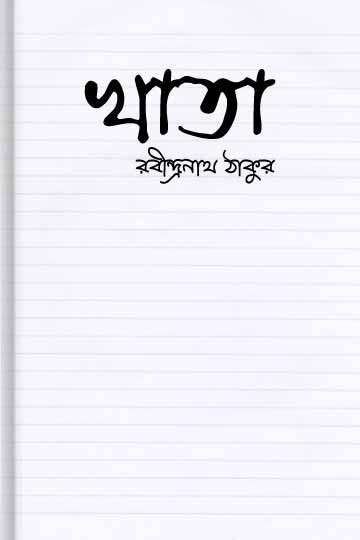 খাতা
রবীন্দ্রনাথ ঠাকুর